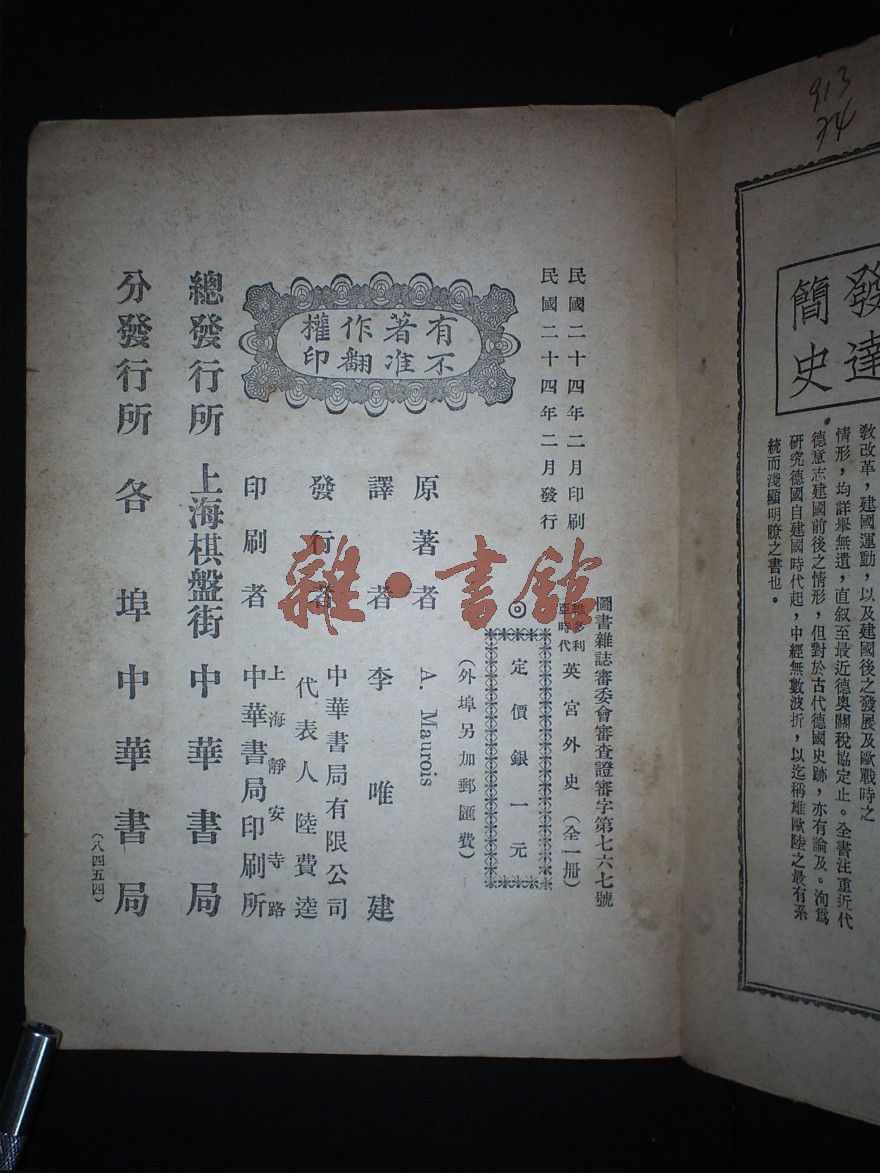 913
34
發達
簡史
教改革，建國運動，以及建國後之發展及歐戰時之
情形，均詳舉無遺，直叙至最近德奧關稅協定止。全書注重近代
德意志建國前後之情形，但對於古代德國史跡，亦有論及。洵爲
研究德國自建國時代起，中經無數波折，以迄稱雄歐陸之最有系
統而淺顯明瞭之書也。
圖書雜誌審委會審查證審字第七六七號
民國二十四年二月印刷
民國二十四年二月發行
維多利亞時代 英宮外史（全一册）
◎定價銀一元
（外埠另加郵匯費）
有著作權
不准翻印
原著者 A. Maurois
譯者 李唯建
發行者 中華書局有限公司
代表人 陸費逵
印刷者 上海靜安寺路
中華書局印刷所
總發行所 上海棋盤街 中華書局
分發行所 各埠中華書局
（八四五四）
雜·書館